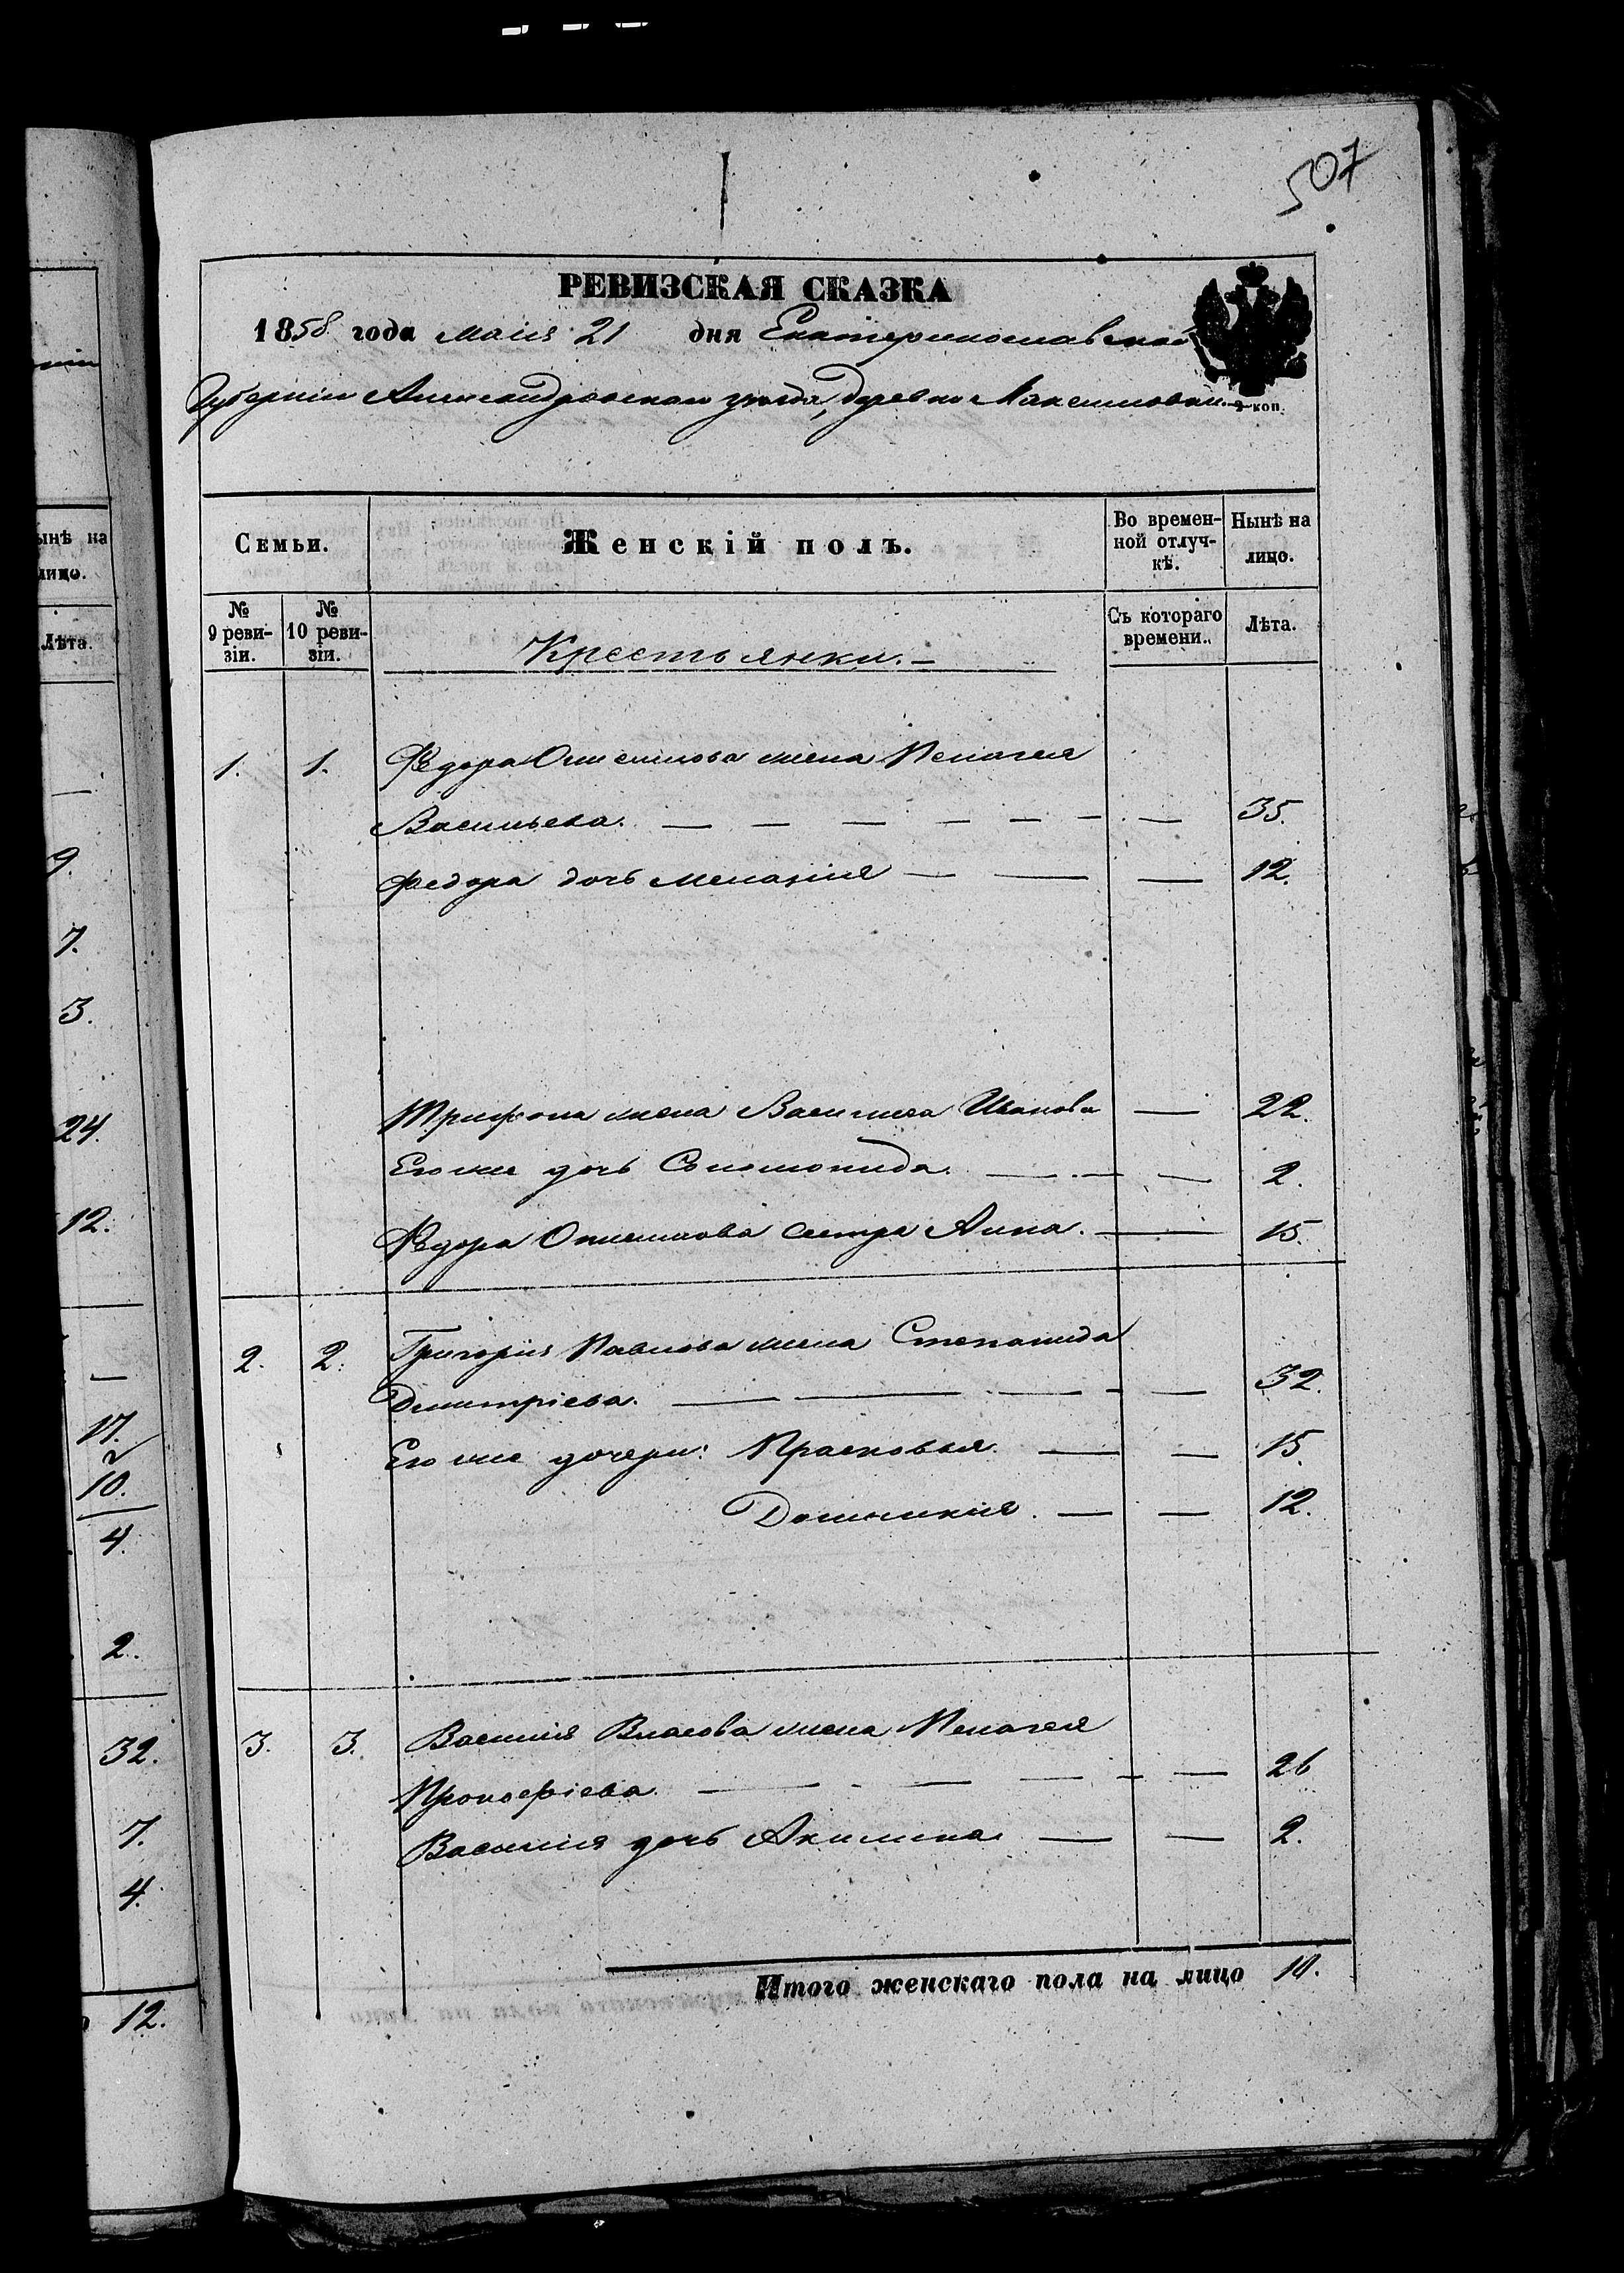 507
РЕВИЗСКАЯ СКАЗКА
1858 года маія 21 дня Екатеринославской
Губерніи Александровскаго уѣзда, деревни Максимовки
коп.
Семьи.
Женскій полъ.
Во времен-
ной отлуч-
кѣ.
Нынѣ на
лицо.
№
9 реви-
зіи.
№
10 реви-
зіи.
Крестьянки.
Съ котораго
времени.
Лѣта.
1. 1. Федора жена Пелагея
Васильева. 35.
Федора дочь Меланія 12.
Трифона жена Василиса Иванова 22.
Его же дочь Соломонида. 2.
Федора сестра Анна. 15.
2. 2. Григорія Павлова жена Степанида
Дмитріева. 32.
Его же дочери: Прасковья. 15.
Домникія. 12.
3. 3. Василія Власова жена Пелагея
Прокофіева. 26
Василія дочь Акилина 2.
Итого женскаго пола на лицо 10.
ынѣ на
лицо.
Лѣта.
9.
7.
3.
24.
12.
17.
10.
4.
2.
32.
7.
4.
12.